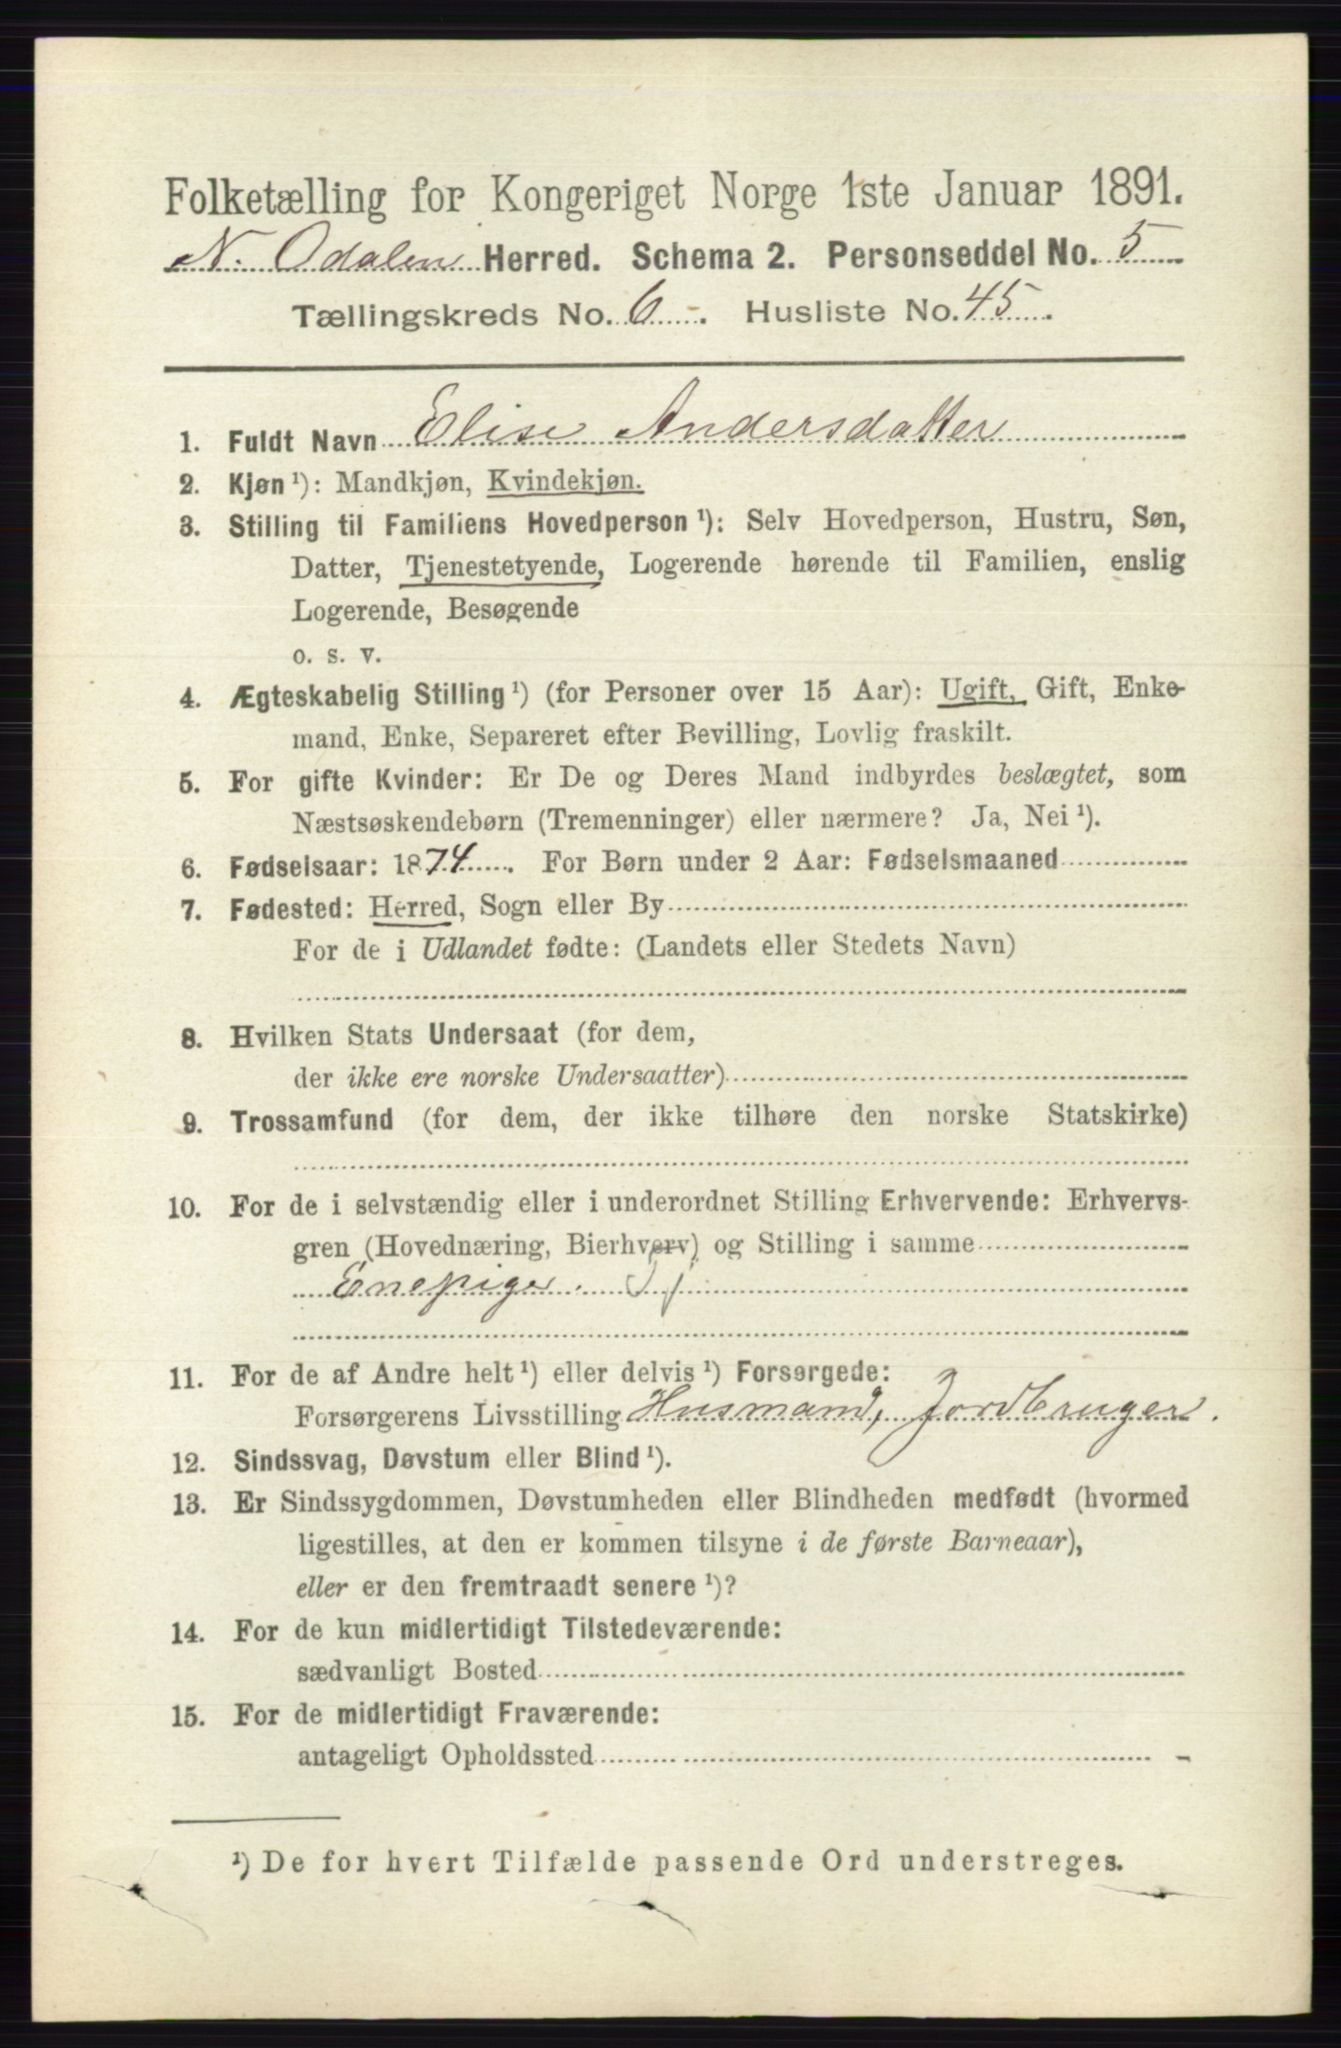 Folketælling for Kongeriget Norge 1ste Januar 1891.
N. Odalen Herred. Schema 2. Personseddel No. 5
Tællingskreds No. 6. Husliste No. 45.
1. Fuldt Navn Elise Andersdatter
2. Kjøn ¹): Mandkjøn, Kvindekjøn.
3. Stilling til Familiens Hovedperson ¹): Selv Hovedperson, Hustru, Søn,
Datter, Tjenestetyende, Logerende hørende til Familien, enslig
Logerende, Besøgende
o. s. v.
4. Ægteskabelig Stilling ¹) (for Personer over 15 Aar): Ugift, Gift, Enke-
mand, Enke, Separeret efter Bevilling, Lovlig fraskilt.
5. For gifte Kvinder: Er De og Deres Mand indbyrdes beslægtet, som
Næstsøskendebørn (Tremenninger) eller nærmere? Ja, Nei ¹).
6. Fødselsaar: 1874. For Børn under 2 Aar: Fødselsmaaned
7. Fødested: Herred, Sogn eller By
For de i Udlandet fødte: (Landets eller Stedets Navn)
8. Hvilken Stats Undersaat (for dem,
der ikke ere norske Undersaatter)
9. Trossamfund (for dem, der ikke tilhøre den norske Statskirke)
10. For de i selvstændig eller i underordnet Stilling Erhvervende: Erhvervs-
gren (Hovednæring, Bierhverv) og Stilling i samme
Enepige.
11. For de af Andre helt ¹) eller delvis ¹) Forsørgede:
Forsørgerens Livsstilling Husmand, Jordbruger.
12. Sindssvag, Døvstum eller Blind ¹).
13. Er Sindssygdommen, Døvstumheden eller Blindheden medfødt (hvormed
ligestilles, at den er kommen tilsyne i de første Barneaar),
eller er den fremtraadt senere ¹)?
14. For de kun midlertidigt Tilstedeværende:
sædvanligt Bosted
15. For de midlertidigt Fraværende:
antageligt Opholdssted -
¹) De for hvert Tilfælde passende Ord understreges.